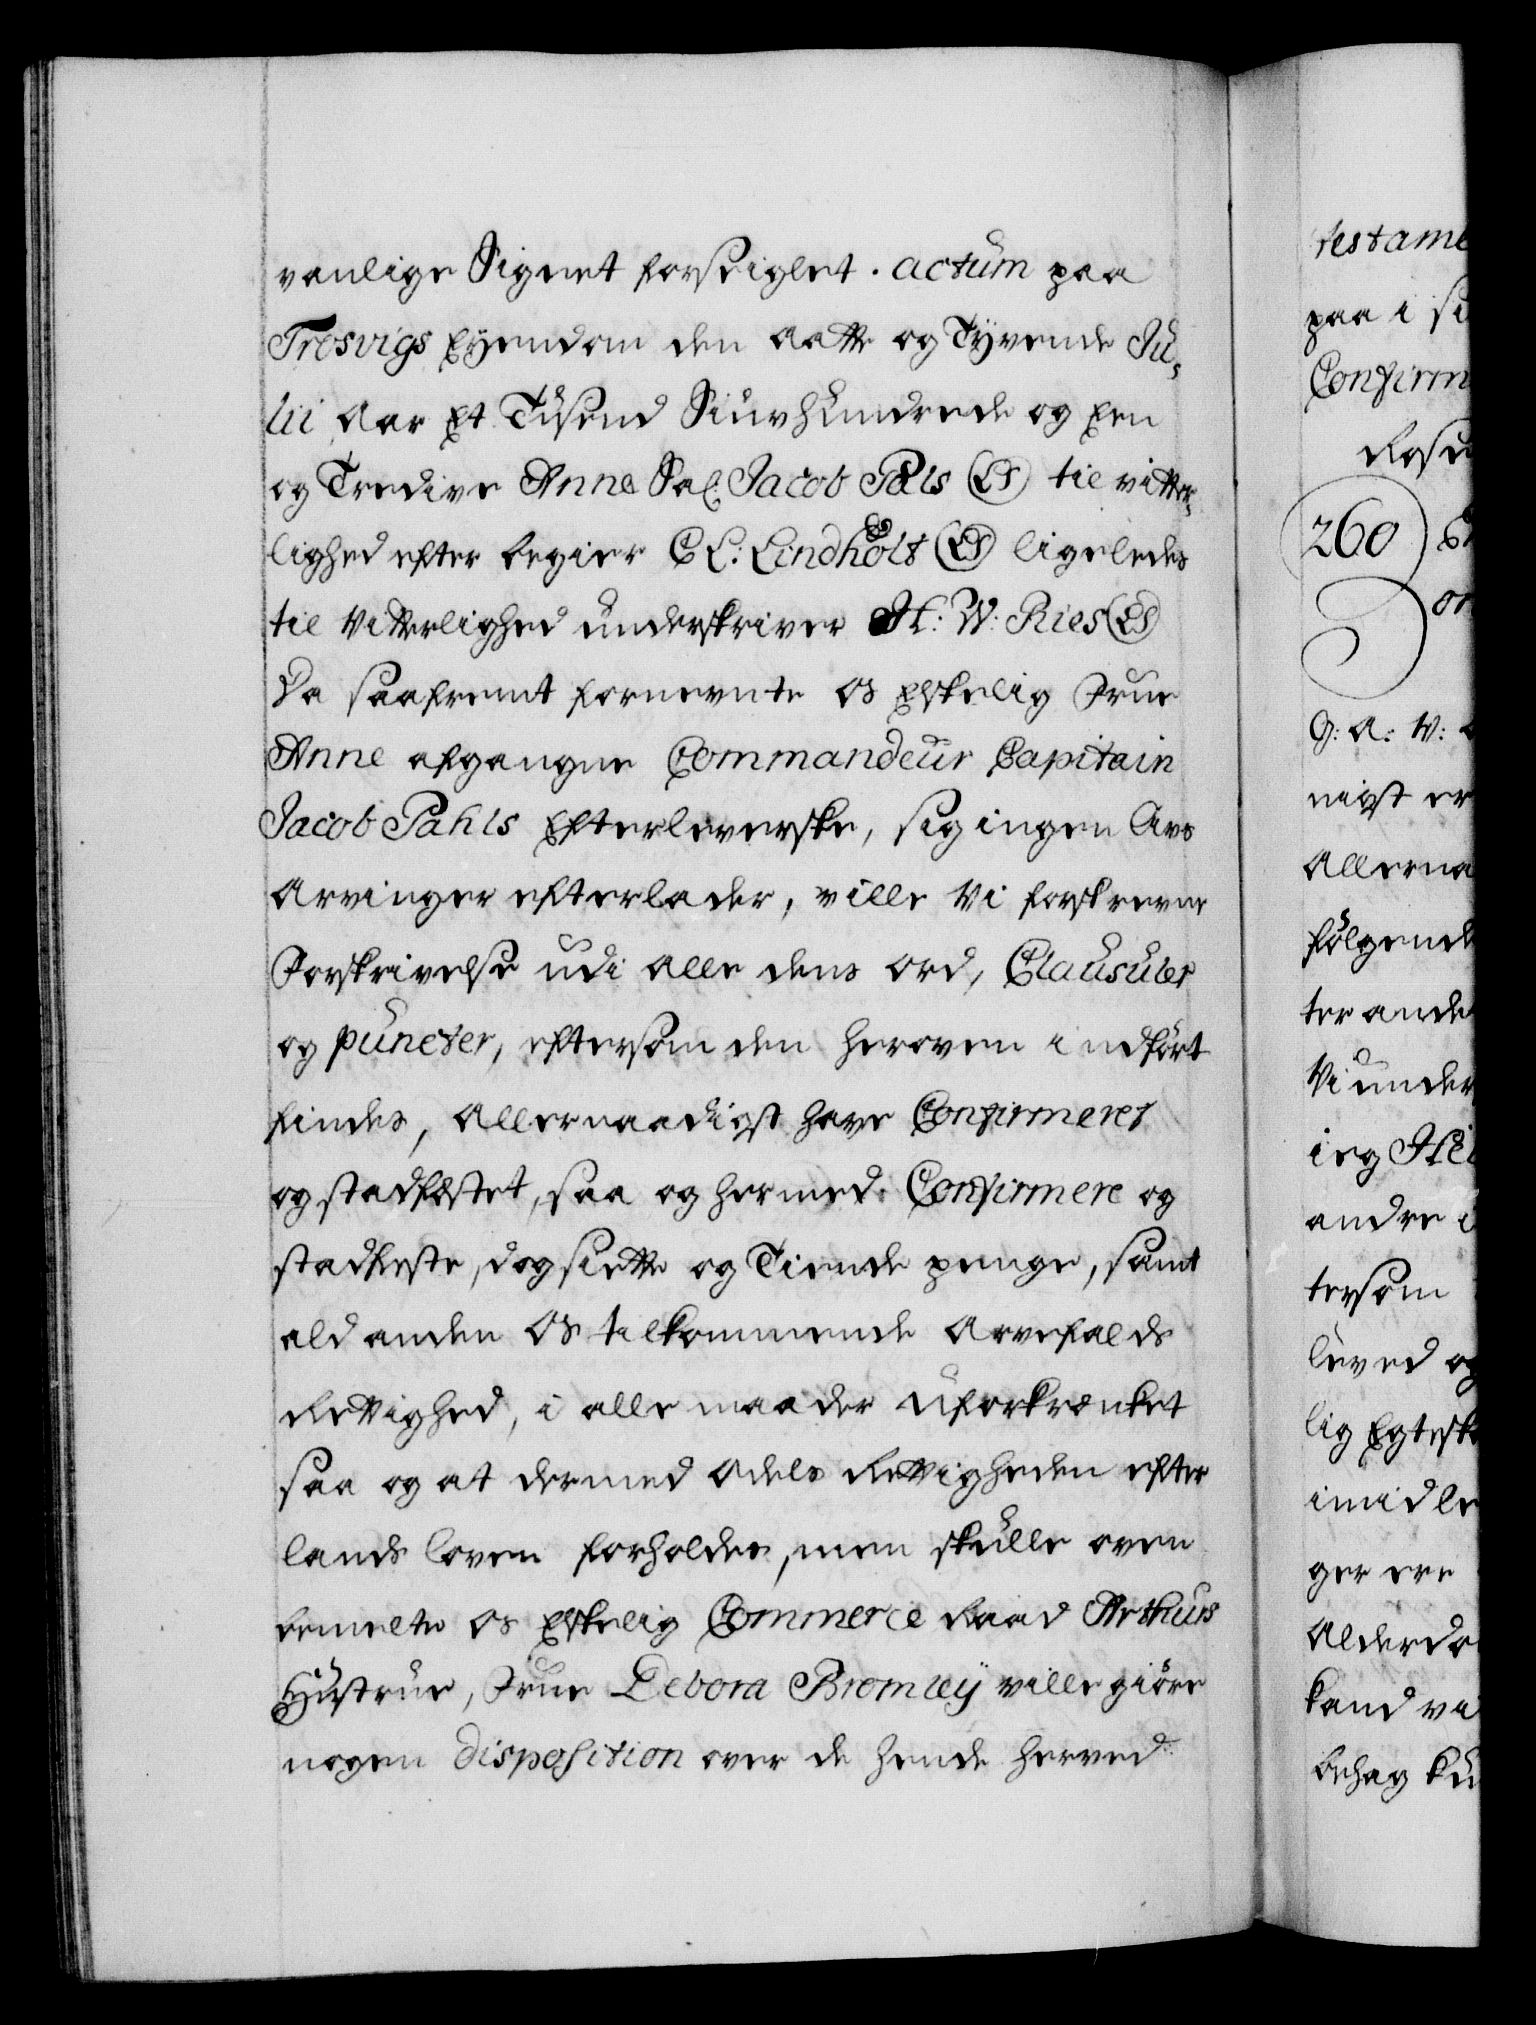 vanlige Signet forseiglet. actum paa
Trosvigs Eyendom den aatte og Tyvende Ju-
lii Aar Et Tusend Siuvhundrede og Een
og Tredive Anne Sal. Jacob Pals (LS) til vitter-
lighed efter begier C L: Lindholt (LS) ligeledes
til Vitterlighed underskriver H: W: Ries (LS)
Da saafremt fornevnte os Elskelig Frue
Anne afgangne Commandeur Capitain
Jacob Pahls Efterleverske, sig ingen Livs
Arvinger efterlader, ville Vi forskrevne
Forskrivelse udi alle dens ord, Clausuler
og puncter, eftersom den heroven indført
findes, Allernaadigst have Confirmeret
og stadfæstet, saa og hermed Confirmere og
stadfeste, dog siette og Tiende penge, samt
ald anden Os tilkommende Arvefalds
Rettighed, i alle maader uforkrænket
saa og at dermed Odels Rettigheden efter
lands loven forholdes, men skulle oven
bemelte os Elskelig Commerce Raad Arthurs
Hustrue, Frue Debora Bromley ville giøre
nogen disposition over de hende herved
testame
paa i
Confirm
Rose
260
G: A: V:
nigst er
Allerna
følgende
ter ande
Vi under
ieg
andre
tersom
leved og
lig Egtesk
imidle
ger ere
Alderdo
kand vi
behag